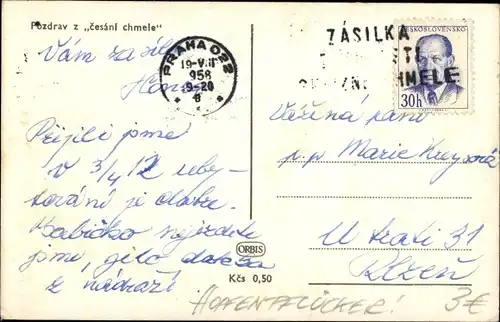 Pozdrav z „česání chmele"
Vám zasílá
Honza
Přijeli jsme
v 3/4 12 uby-
tování je dobré.
Babičko nejezdete
jsme, je to daleko
z nádraží
PRAHA 022
19-VIII
958
9-20
8
ZÁSILKA
CHMELE
ČESKOSLOVENSKO
30h
Vážená paní
p. p. Marie
U trati 31
Plzeň
ORBIS
Kčs 0,50
HOPFENPFLÜCKER!
3€